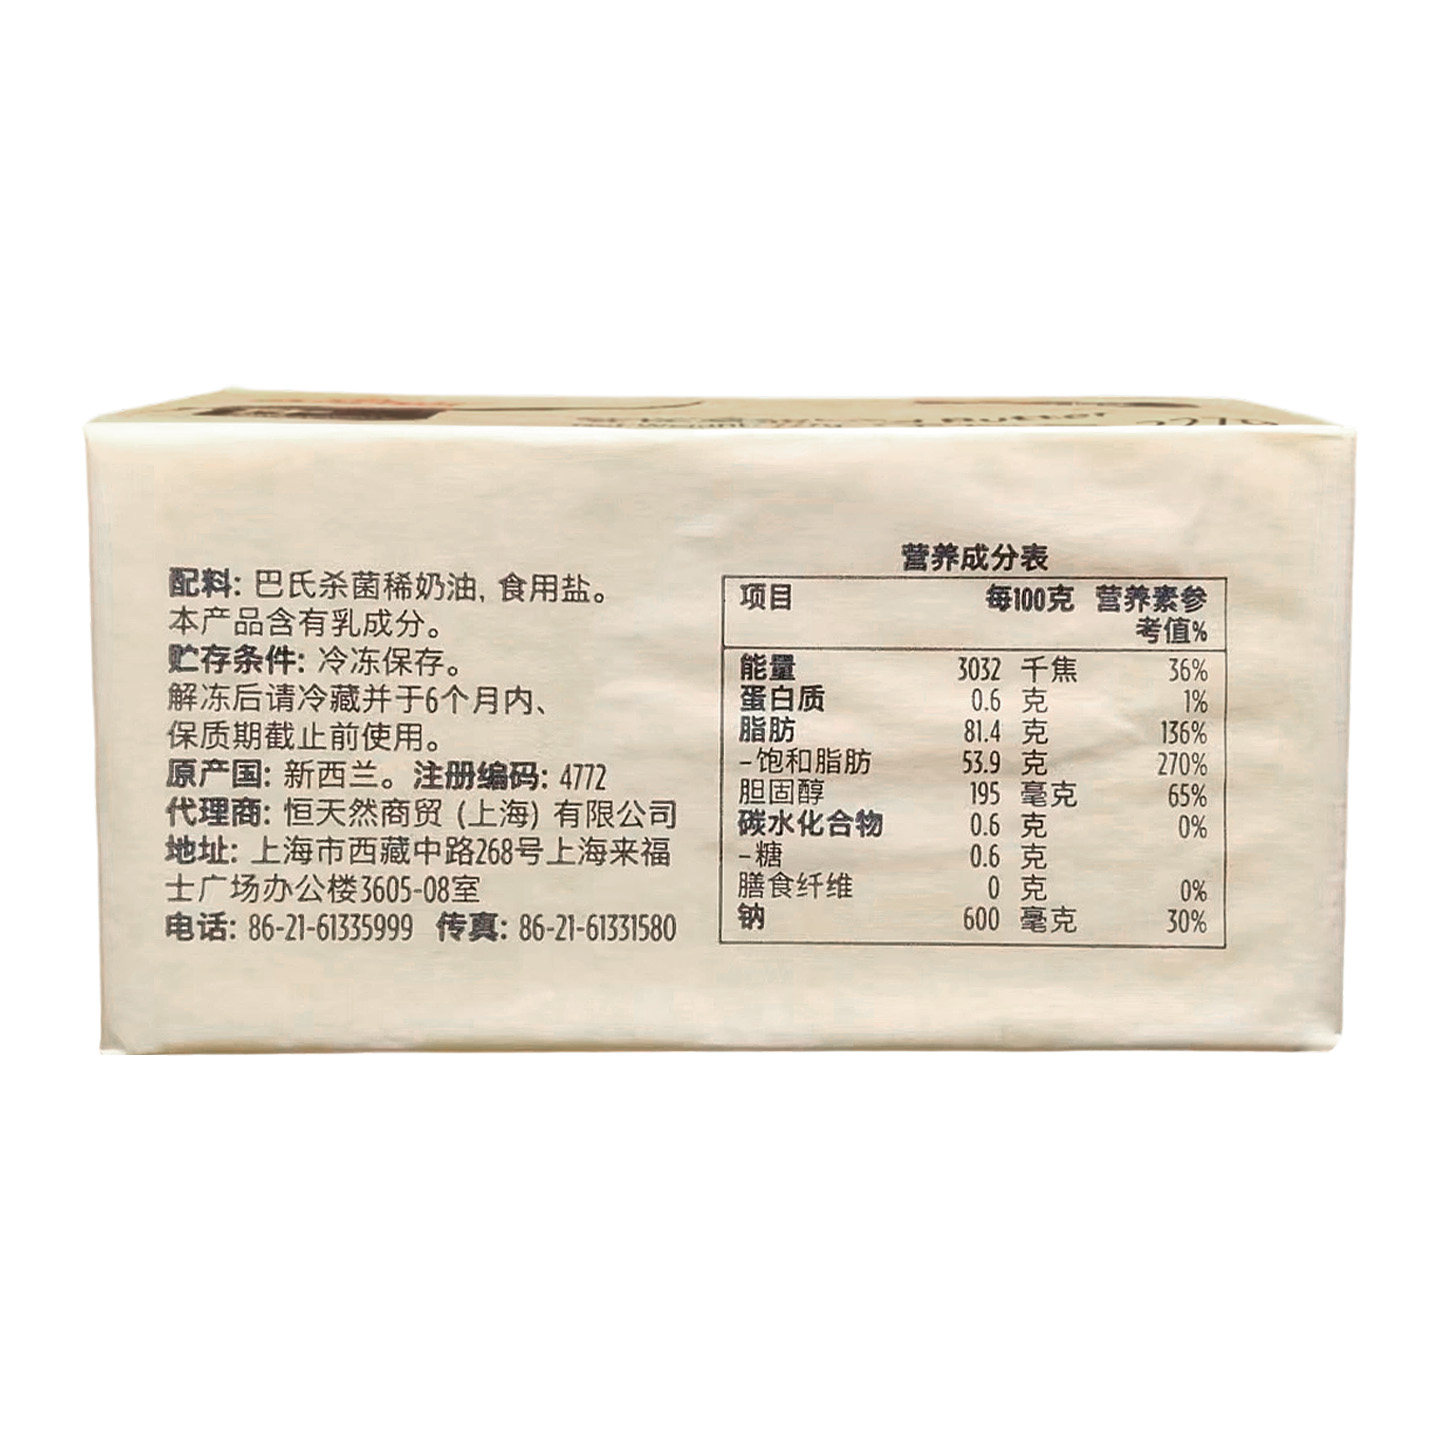 Butter
227g
配料: 巴氏杀菌稀奶油, 食用盐。
本产品含有乳成分。
贮存条件: 冷冻保存。
解冻后请冷藏并于6个月内、
保质期截止前使用。
原产国: 新西兰。注册编码: 4772
代理商: 恒天然商贸 (上海) 有限公司
地址: 上海市西藏中路268号上海来福
士广场办公楼3605-08室
电话: 86-21-61335999 传真: 86-21-61331580
营养成分表
项目 每100克 营养素参
考值%
能量 3032 千焦 36%
蛋白质 0.6 克 1%
脂肪 81.4 克 136%
–饱和脂肪 53.9 克 270%
胆固醇 195 毫克 65%
碳水化合物 0.6 克 0%
–糖 0.6 克
膳食纤维 0 克 0%
钠 600 毫克 30%